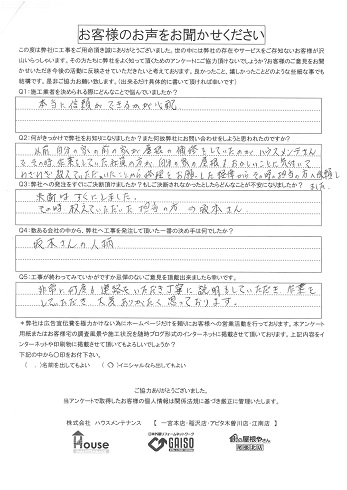 お客様のお声をお聞かせください
この度は弊社に工事をご用命頂き誠にありがとうございました。世の中には弊社の存在やサービスをご存知ないお客様が沢
山いらっしゃいます。その方たちに弊社をよく知って頂くためのアンケートにご協力頂けないでしょうか?お客様のご意見をお聞
かせいただき今後の活動に反映させていただきたいと考えております。良かったこと、嬉しかったことどのような些細な事でも
結構です。是非ご協力お願い致します。(出来るだけ具体的に書いて頂ければ幸いです)
Q1:施工業者を決められる際にどんなことで悩んでいましたか?
本当に信頼ができるのか心配
Q2:何がきっかけで弊社をお知りになりましたか?また何故弊社にお問い合わせをしようと思われたのですか?
以前自分の家の前の家が屋根の補修をしていたのがハウスメンテさん
で、その時、作業をしていた社員の方が、自分の家の屋根もおかしいことに気付いて
Q3:弊社への発注をすぐにご決断頂けましたか?もしご決断されなかったとしたらどんなことが不安になりましたか?
決断はすぐにしました。
その時、教えていただいた担当の方の坂本さん
Q4:数ある会社の中から、弊社へ工事を発注して頂いた一番の決め手は何でしたか?
坂本さんの人柄
Q5:工事が終わってみていかがですか忌憚のないご意見を頂戴出来ましたら幸いです。
非常に何度も連絡をいただき丁寧に説明もしていただき、作業を
していただき、大変ありがたく思っております。
*弊社は広告宣伝費を極力かけない為にホームページだけを頼りにお客様への営業活動を行っております。本アンケート
用紙またはお客様宅の調査風景や施工状況を随時ブログ形式のインターネットに掲載させて頂いております。上記内容をイ
ンターネットや印刷物に掲載させて頂いてもよろしいでしょうか?
下記の中から〇印をお付下さい。
( )名前を出してもよい (〇)イニシャルなら出してもよい
ご協力ありがとうございました。
当アンケートで取得したお客様の個人情報は関係法規に基づき厳正に管理いたします。
株式会社 ハウスメンテナンス 【 一宮本店・稲沢店・アピタ木曽川店・江南店 】
House
日本外装リフォームネットワーク
GAISO
街の屋根やさん